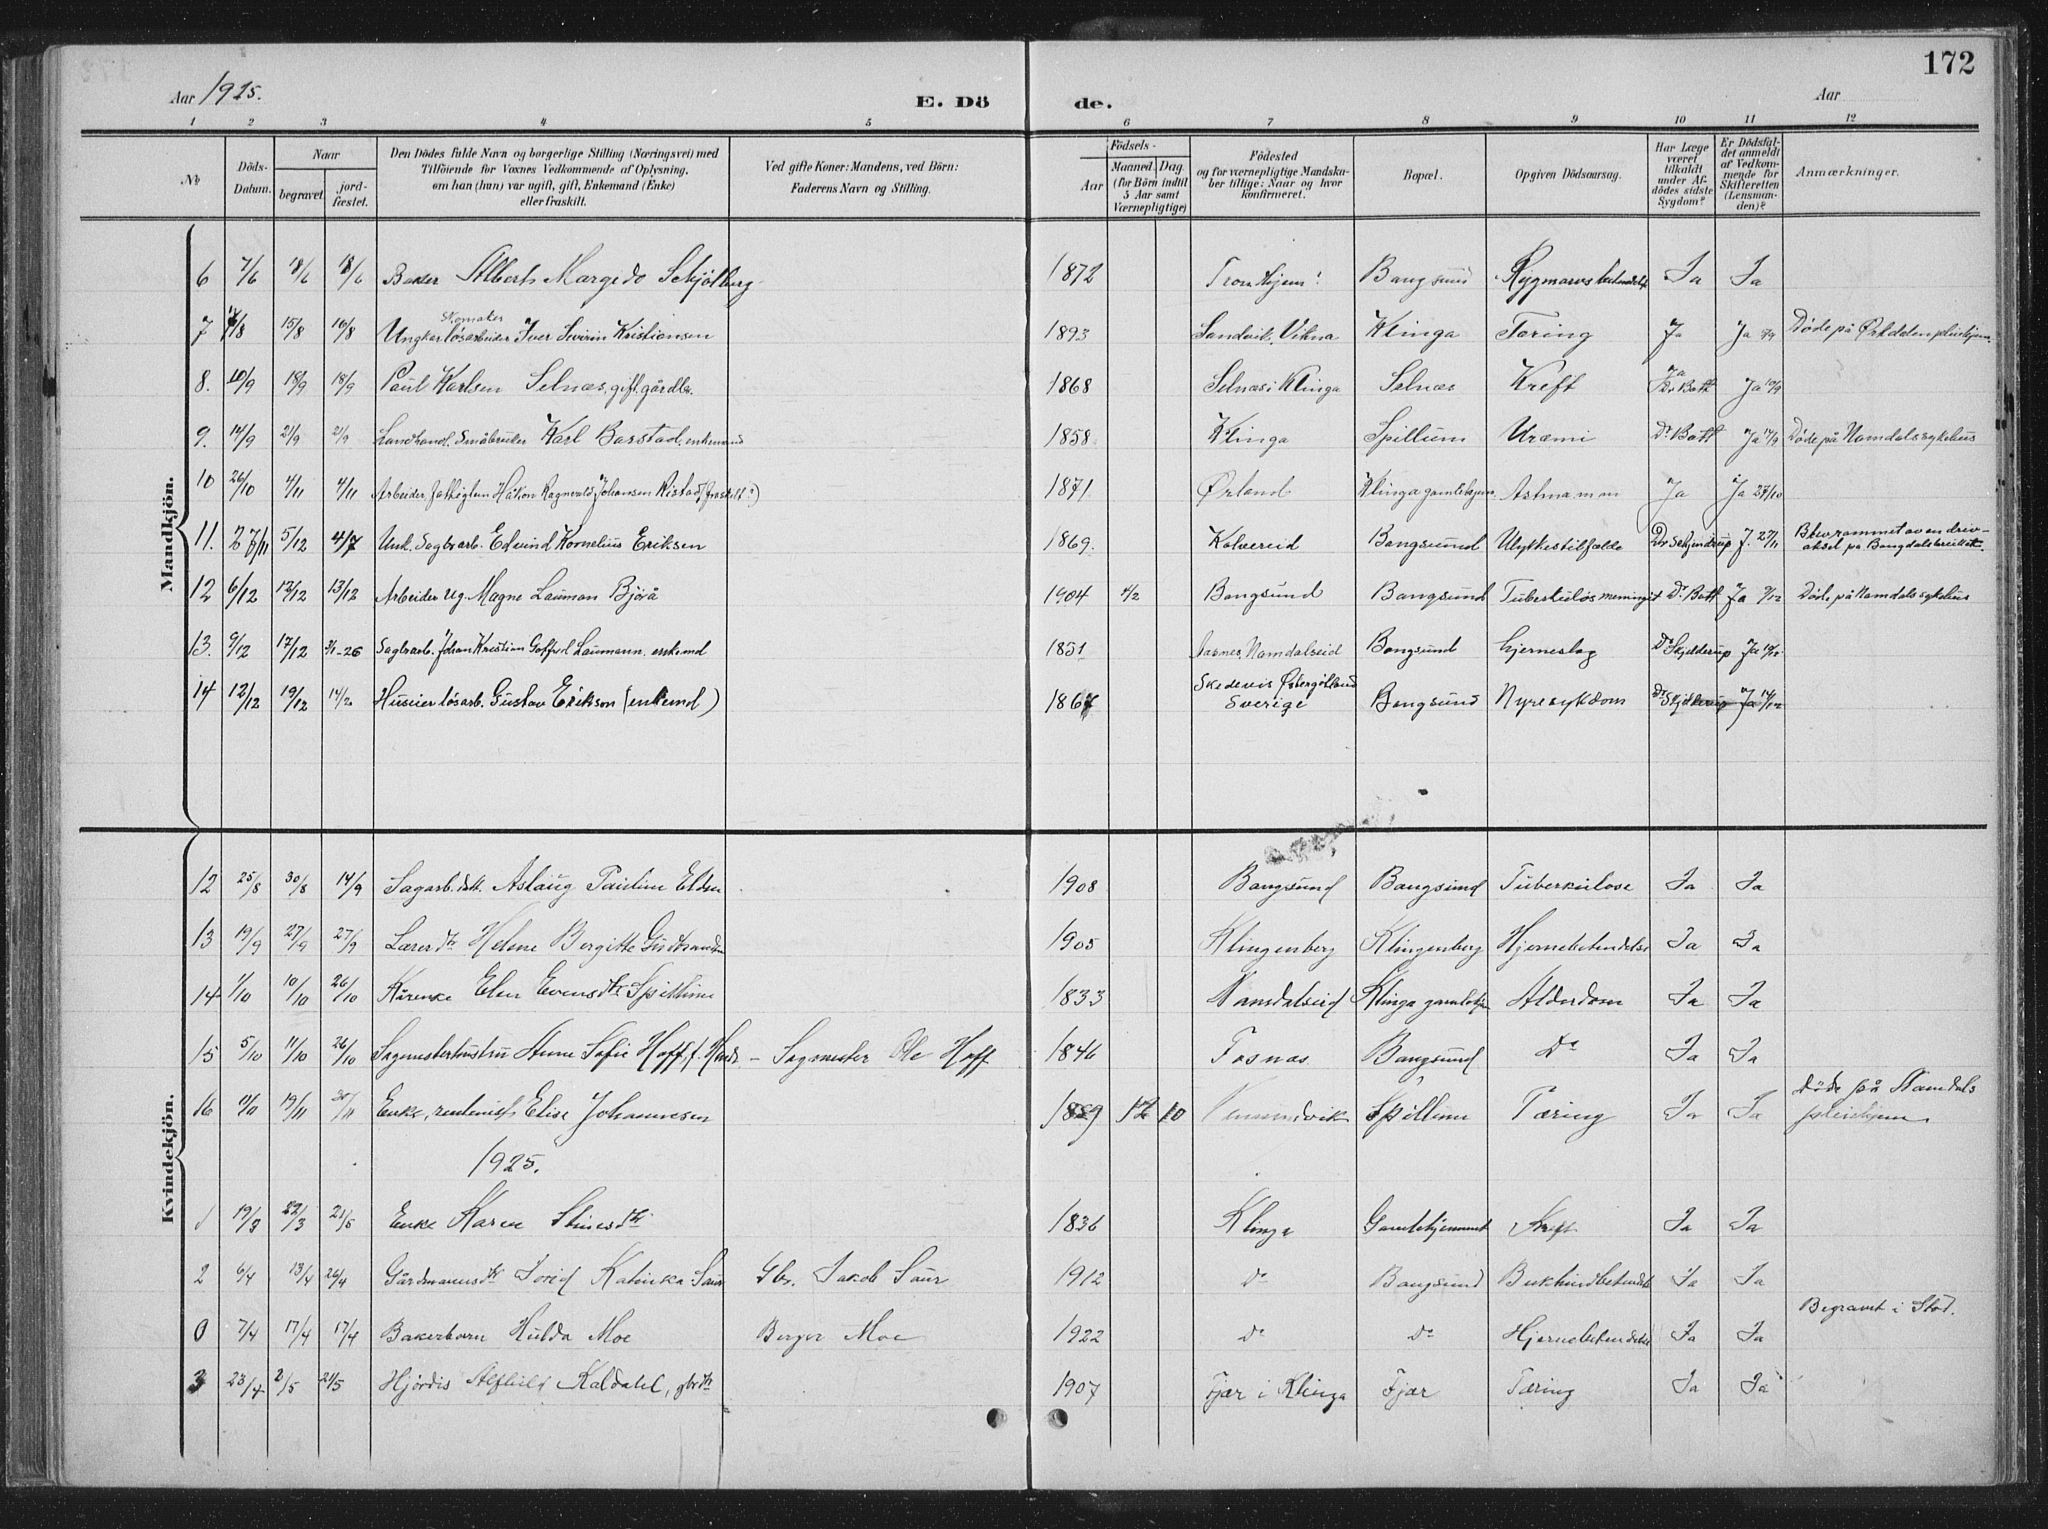 172
Aar 1925. E. Dö de. Aar
1 2 3 4 5 6 7 8 9 10 11 12
№ Döds-Datum. Naar begravet. jord-fæstet. Den Dödes fulde Navn og borgerlige Stilling (Næringsvei) med Tilföiende for Voxnes Vedkommende af Oplysning, om han (hun) var ugift, gift, Enkemand (Enke) eller fraskilt. Ved gifte Koner: Mandens, ved Börn: Faderens Navn og Stilling. Födsels- Aar Maaned. Dag. (for Börn indtil 5 Aar samt Værnepligtige) Födested og for værnepligtige Mandskaber tillige: Naar og hvor konfirmeret. Bopæl. Opgiven Dödsaarsag. Har Læge været tilkaldt under Afdödes sidste Sygdom? Er Dödsfaldet anmeldt af Vedkommende for Skifteretten (Lensmanden)? Anmærkninger.
Mandkjön.
6 7/6 18/6 18/6 Baker Alberts Margido Schjölberg 1872 Trondhjem Bangsund Rygmarvsbetendelse Ja Ja
7 7/8 15/8 16/8 Ungkar løsarbeider Iver Severin Kristiansen 1893 Sandvik, Vikna Klinga Tæring Ja Ja Døde på Ørkdalen pleiehjem.
8. 10/9 18/9 18/9 Paul Karlsen Selnæs, gift gårdbr. 1868 Selnæs i Klinga Selnæs Kreft Ja Dr. Bott Ja 10/9
9. 14/9 21/9 21/9 Landhand. Småbruker Karl Barstad. enkemand 1858 Klinga Spillum Uræmi Dr. Bott Ja 14/9 Døde på Namdals sykehus
10 26/10 4/11 4/11 Arbeider, fattiglem Håkon Ragnvald Johansen Ristad (fraskilt?) 1871 Ørland Klinga gamlehjem Astma m m Ja Ja 27/10
11. 27/11 5/12 4/7 Unk. Sagbrarb. Edvind Kornelius Eriksen 1869. Kolvereid Bangsund Ulykkestilfælde Dr Schjelderup J. 27/11 Blev rammet av en driv-aksel på Bangdalsbruket.
12 6/12 12/12 13/12 Arbeider ug. Magne Lauman Bjørå 1904 4/2 Bangsund Bangsund Tuberkuløs meningit Dr. Bott Ja 9/12 Døde på Namdals sykehus
13. 9/12 17/12 3/1-26 Sagbrarb. Johan Kristian Gotfred Laumann. enkemd 1851 Aasnes, Namdalseid Bangsund hjerneslag Dr. Skjelderup Ja 10/12
14 12/12 19/12 14/2 Huseier løsarb. Gustav Erikson (enkemd) 1867 Skedevis Østergötland Sverige Bangsund Nyresykdom Dr. Skjelderup Ja 14/12
Kvindekjön.
12 25/8 30/8 14/9 Sagarb.dtr. Aslaug Pauline Elden 1908 Bangsund Bangsund Tuberkulose Ja Ja
13 19/9 27/9 27/9 Lærerdtr Helene Bergitte Gudbrandsen 1905 Klingenberg Klingenberg Hjernebetendelse Ja Ja
14 1/10 10/10 26/10 Kårenke Elen Evensdtr Spillum 1833 Namdalseid Klinga gamlehjem Alderdom Ja Ja
15 5/10 11/10 26/10 Sagmesterhustru Anne Sofie Hoff f. Sagmester Ole Hoff 1846 Fosnæs Bangsund Do Ja Ja
16 11/10 19/11 30/11 Enke, rentenist Elise Johannesen 1889 12 10 Vemundvik Spillum Tæring Ja Ja Døde på Namdals pleiehjem
1925.
1 19/3 22/3 21/5 Enke Karen 1836 Klinga Gamlehjemmet Kreft Ja Ja
2 6/4 13/4 26/4 Gårdmannsdtr Torid Katinka Saur Gbr. Jakob Saur 1912 do Bangsund Bukhindbetendelse Ja Ja
0 7/4 17/4 17/4 Bakerbarn Hulda Moe Berger Moe 1922 do do Hjernebetendelse Ja Ja Begravet i Stod.
3 23/4 2/5 21/5 Hjørdis Alfhild Kaldahl, gbrdtr 1907 Fjær i Klinga Fjær Tæring Ja Ja